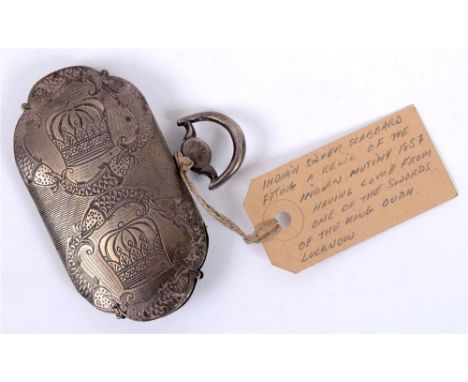 INDIAN SILVER SCABBARD
FITING A RELIC OF THE
INDIAN MUTINY 1857
HAVING COME FROM
ONE OF THE SWORDS.
OF THE KING OUDH.
LUCKNOW